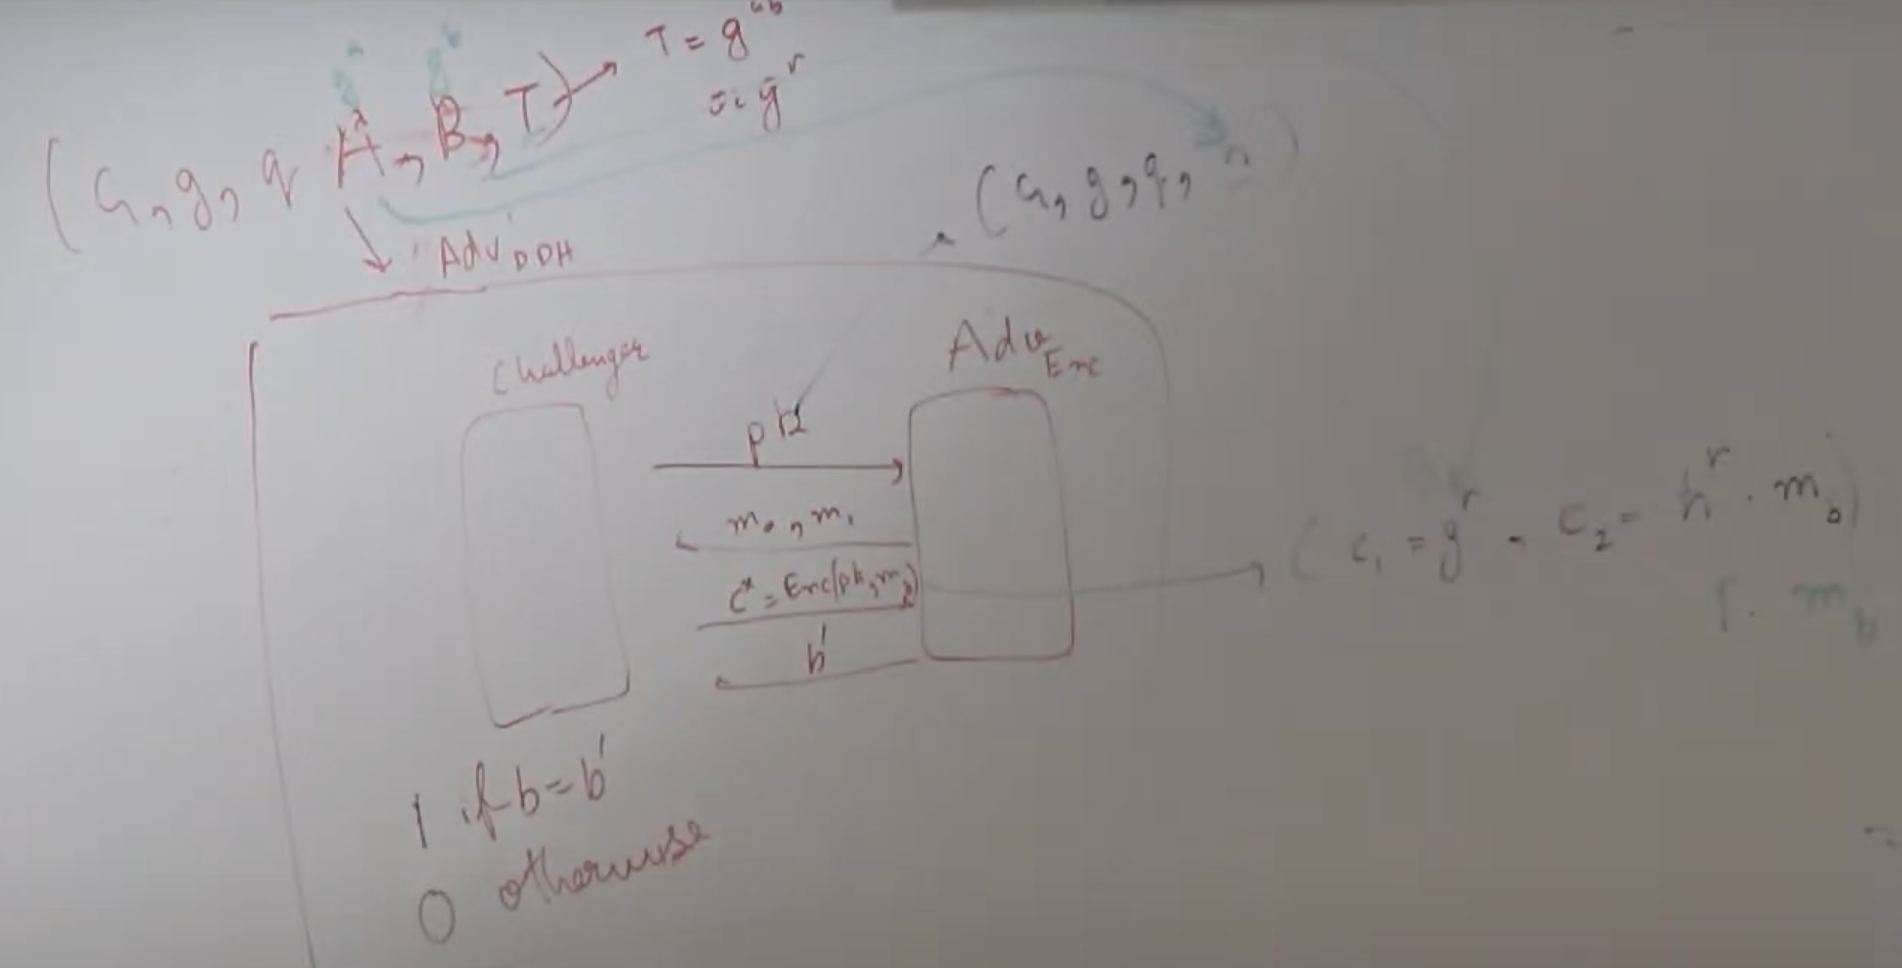 T = g^ab
or g^r
g^a g^b
(G, g, q A, B, T)
(G, g, q, h)
Adv DDH
Challenger
Adv Enc
pk
m₀, m₁
C* = Enc(pk, m_b)
b'
(c₁ = g^r , c₂ = h^r . m_b)
T . m_b
1 if b = b'
0 otherwise